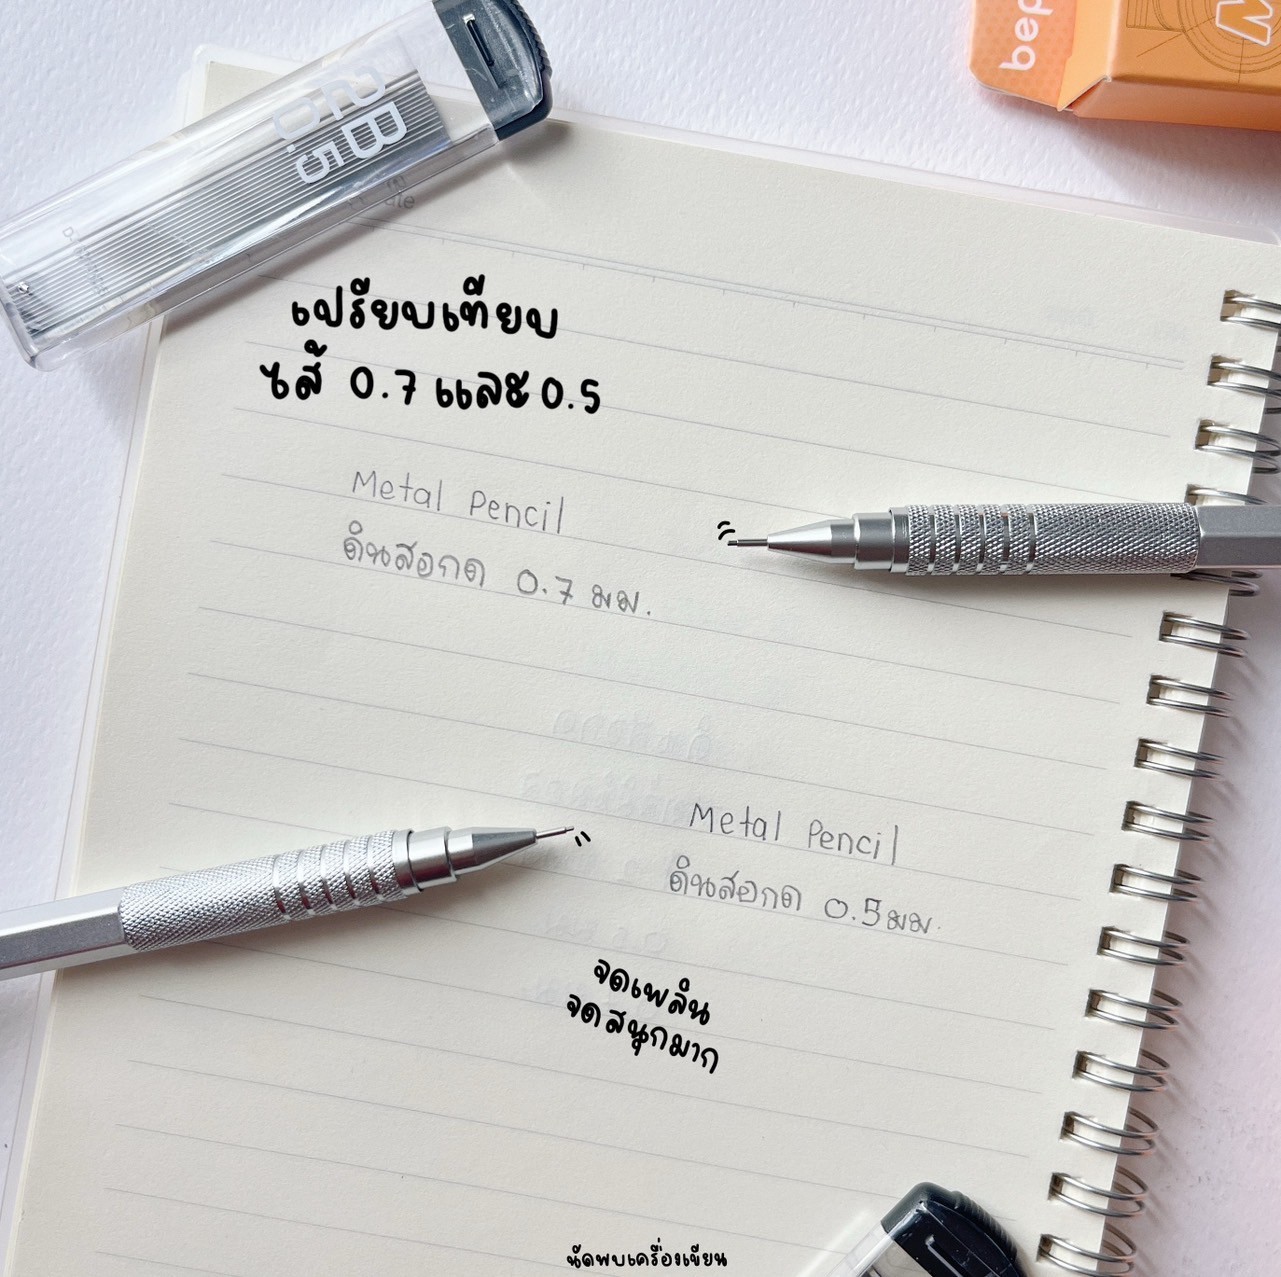 bep
2B
0.5
เปรียบเทียบ
ไส้ 0.7 และ 0.5
Metal Pencil
ดินสอกด 0.7 มม.
Metal Pencil
ดินสอกด 0.5 มม.
จดเพลิน
จดสนุกมาก
นัดพบเครื่องเขียน